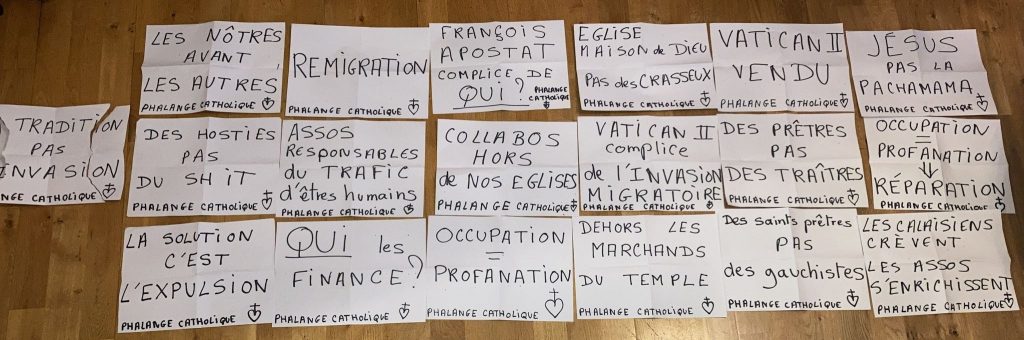 LES NÔTRES
AVANT
LES AUTRES
PHALANGE CATHOLIQUE
REMIGRATION
PHALANGE CATHOLIQUE
FRANÇOIS
APOSTAT
COMPLICE DE
QUI ?
PHALANGE
CATHOLIQUE
EGLISE
MAISON de DIEU
PAS des CRASSEUX
PHALANGE CATHOLIQUE
VATICAN II
VENDU
PHALANGE CATHOLIQUE
JÉSUS
PAS LA
PACHAMAMA
PHALANGE CATHOLIQUE
TRADITION
PAS
INVASION
NGE CATHOLIQUE
DES HOSTIES
PAS
DU SHIT
PHALANGE CATHOLIQUE
ASSOS
RESPONSABLES
du TRAFIC
d'êtres humains
PHALANGE CATHOLIQUE
COLLABOS
HORS
de NOS EGLISES
PHALANGE CATHOLIQUE
VATICAN II
complice
de l'INVASION
MIGRATOIRE
PHALANGE CATHOLIQUE
DES PRÊTRES
PAS
DES TRAÎTRES
PHALANGE CATHOLIQUE
OCCUPATION
=
PROFANATION
↓
RÉPARATION
PHALANGE CATHOLIQUE
LA SOLUTION
C'EST
L'EXPULSION
PHALANGE CATHOLIQUE
QUI les
FINANCE ?
PHALANGE CATHOLIQUE
OCCUPATION
=
PROFANATION
PHALANGE CATHOLIQUE
DEHORS LES
MARCHANDS
DU TEMPLE
PHALANGE CATHOLIQUE
Des saints prêtres
PAS
des gauchistes
PHALANGE CATHOLIQUE
LES CALAISIENS
CRÈVENT
LES ASSOS
S'ENRICHISSENT
PHALANGE CATHOLIQUE